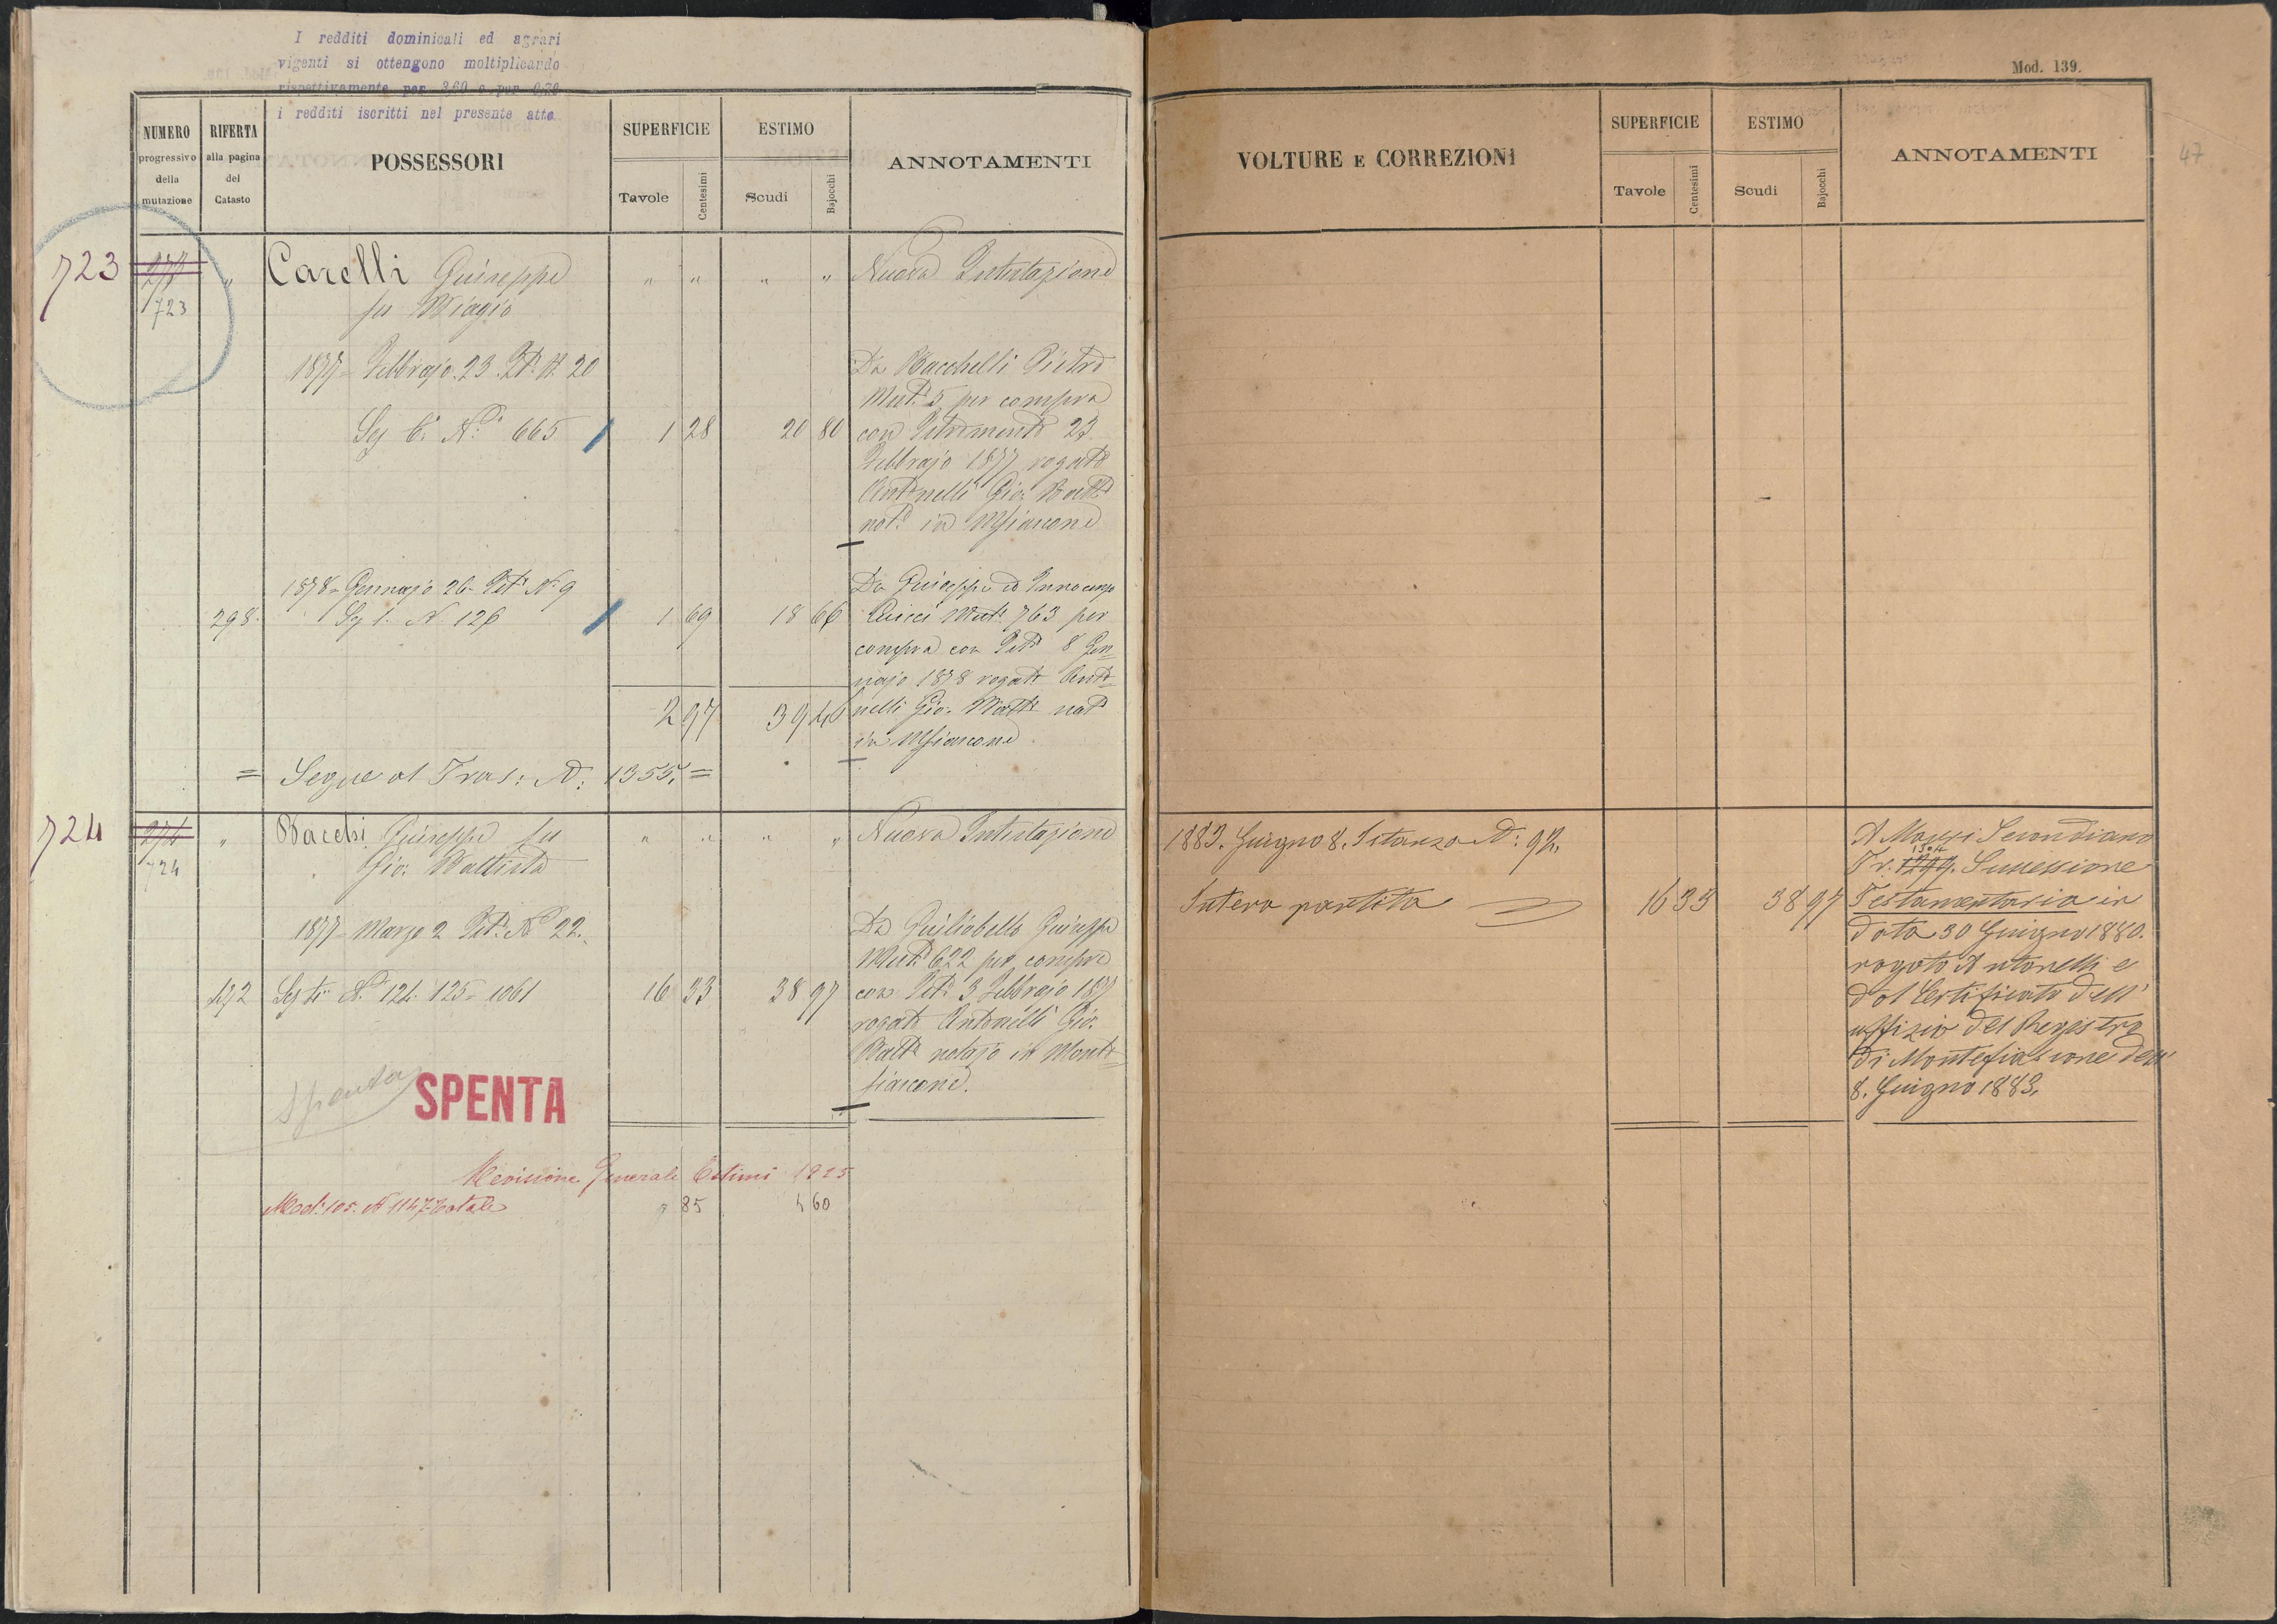 I redditi dominicali ed agrari
vigenti si ottengono moltiplicando
rispettivamente per 3,60 e per 0,70
i redditi iscritti nel presente atto
NUMERO progressivo della mutazione
RIFERTA alla pagina del Catasto
POSSESSORI
SUPERFICIE
Tavole Centesimi
ESTIMO
Scudi Bajocchi
ANNOTAMENTI
723 723 " Carelli Giuseppe " " " " Nuova Intestazione
fu Biagio
1877 = Febbrajo 23. Ist. N. 20 Da Bacchelli Pietro
Mut. 5 per compra
Sez 6. N. 665 1 28 20 80 con Istromento 23
Febbrajo 1877 rogato
Antonelli Gio: Batt.
not. in Mfiascone
1878 = Gennajo 26 = Ist. N. 9 Da Giuseppe ed Innocenzo
298. Sez 1. N. 126 1 69 18 66 Cucci Mut. 763 per
compra con Ist. 8 Gen=
najo 1878 rogato Anto=
2 97 39 46 nelli Gio: Batt. not.
in Mfiascone
= Segue al Tras: N: 1355. =
724 724 " Bacchi Giuseppe fu " " " " Nuova Intestazione
Gio: Battista
1877 = Marzo 2 Ist. N. 22. Da Giuliobello Giuseppe
Mut. 622 per compra
N. 124. 125 = 1061 16 33 38 97 con Ist. 3 Febbrajo 1877
rogato Antonelli Gio:
Batt. notajo in Monte=
fiascone.
Spenta
SPENTA
Revisione Generale Estimi 1925
Mod. 105. N 1147 Totale 85 4 60
Mod. 139.
47
VOLTURE E CORREZIONI
SUPERFICIE
Tavole Centesimi
ESTIMO
Scudi Bajocchi
ANNOTAMENTI
1883. Giugno 8. Istanza N: 92. A Secondiano
Tr. Successione
Intera partita 16 33 38 97 Testamentaria in
data 30 Giugno 1880.
rogato Antonelli e
dal Certificato dell'
uffizio del Registro
di Montefiascone dell'
8. Giugno 1883.